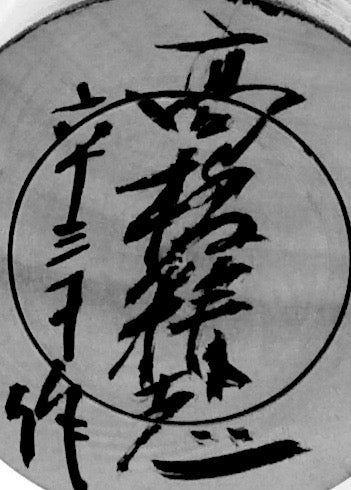 高橋精志
六十三才作